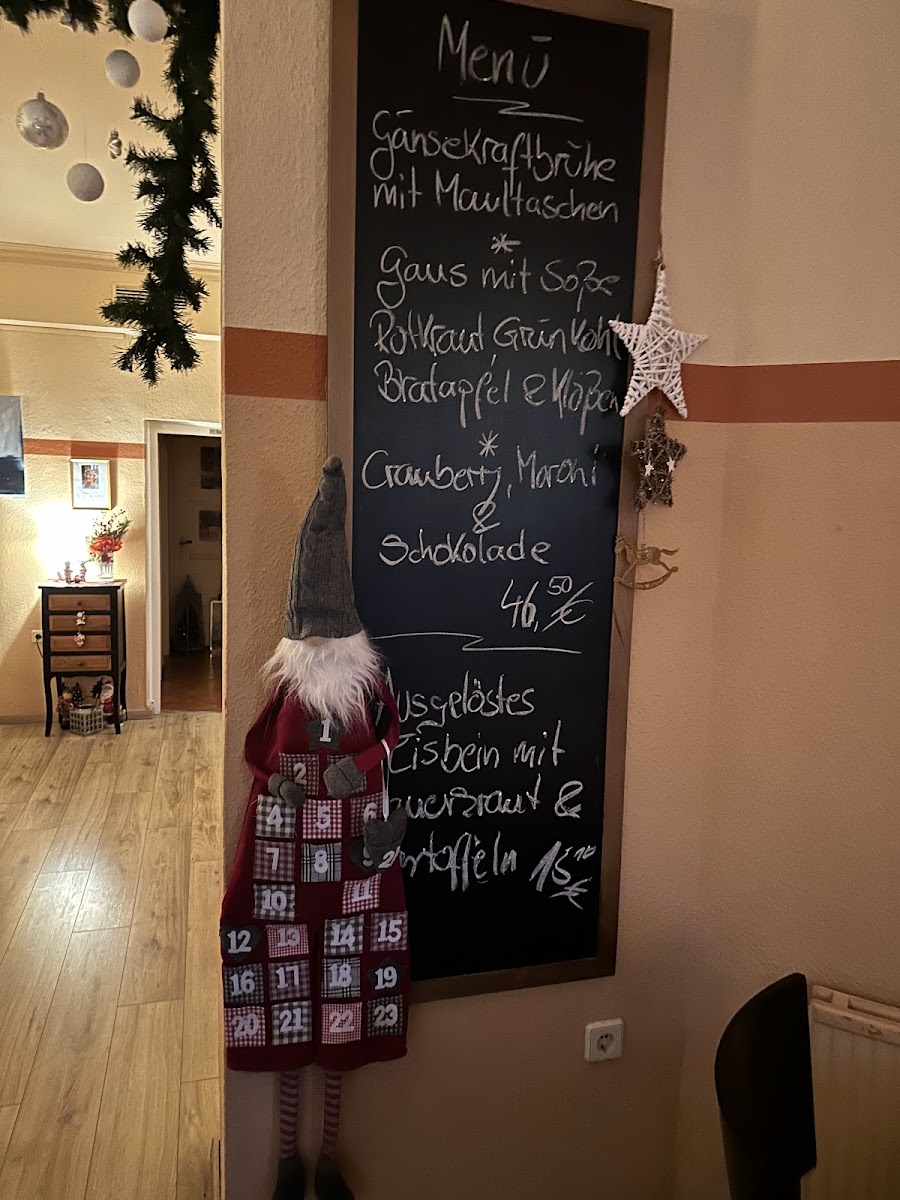 Menü
Gänsekraftbrühe
mit Maultaschen
*
Gans mit Soße
Rotkraut, Grünkohl
Bratapfel & Klößen
*
Cranberry, Maroni
&
Schokolade
46,50 €
usgelöstes
Eisbein mit
auerkraut &
artoffeln 15,10 €
1
2
4 5 6
7 8
10 11
12 13 14 15
16 17 18 19
20 21 22 23